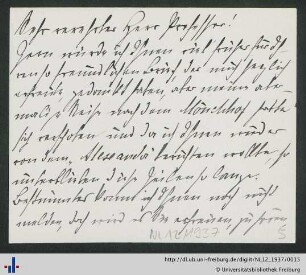 Sehr verehrter Herr Professor!
Gern würde ich Ihnen viel früher für Ih-
ren so freundlichen Brief der mich herzlich
erfreute gedankt haben, aber meine aber-
malige Reise nach dem Mönchhof hatte
sich verschoben und da ich Ihnen wieder
von dem Alessandó berichten wollte so
unterblieben diese Zeilen so lange.
Bestimmtes kann ich Ihnen noch nicht
melden, doch wird es Sie erfreuen, zu hören
NL 12/1937
http://dl.ub.uni-freiburg.de/diglit/NL12_1937/0015
© Universitätsbibliothek Freiburg